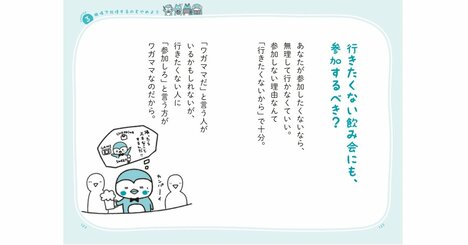 行きたくない飲み会にも、
参加するべき？
あなたが参加したくないなら、
無理して行かなくていい。
参加しない理由なんて
「行きたくないから」で十分。
「ワガママだ」と言う人が
いるかもしれないが、
行きたくない人に
「参加しろ」と言う方が
ワガママなのだから。
カンパーイ